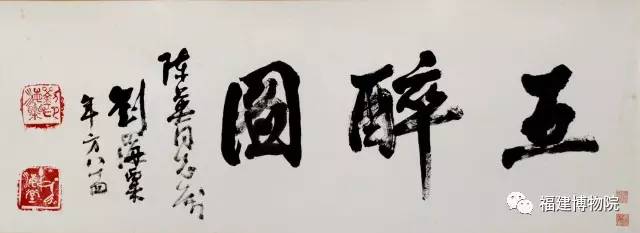 五醉圖
陈英同志属
劉海粟
年方八十四
福建博物院